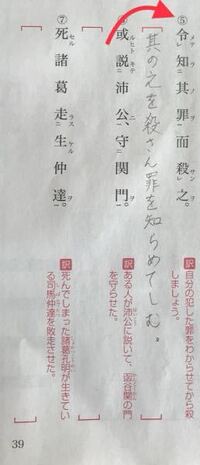 ⑤ 令知其罪而殺之。
其の之を殺さん罪を知らめてしむ。
訳 自分の犯した罪をわからせてから殺
しましょう。
或説沛公、守関門。
訳 ある人が沛公に説いて、函谷関の門
を守らせた。
⑦ 死諸葛走生仲達。
訳 死んでしまった諸葛孔明が生きてい
る司馬仲達を敗走させた。
39